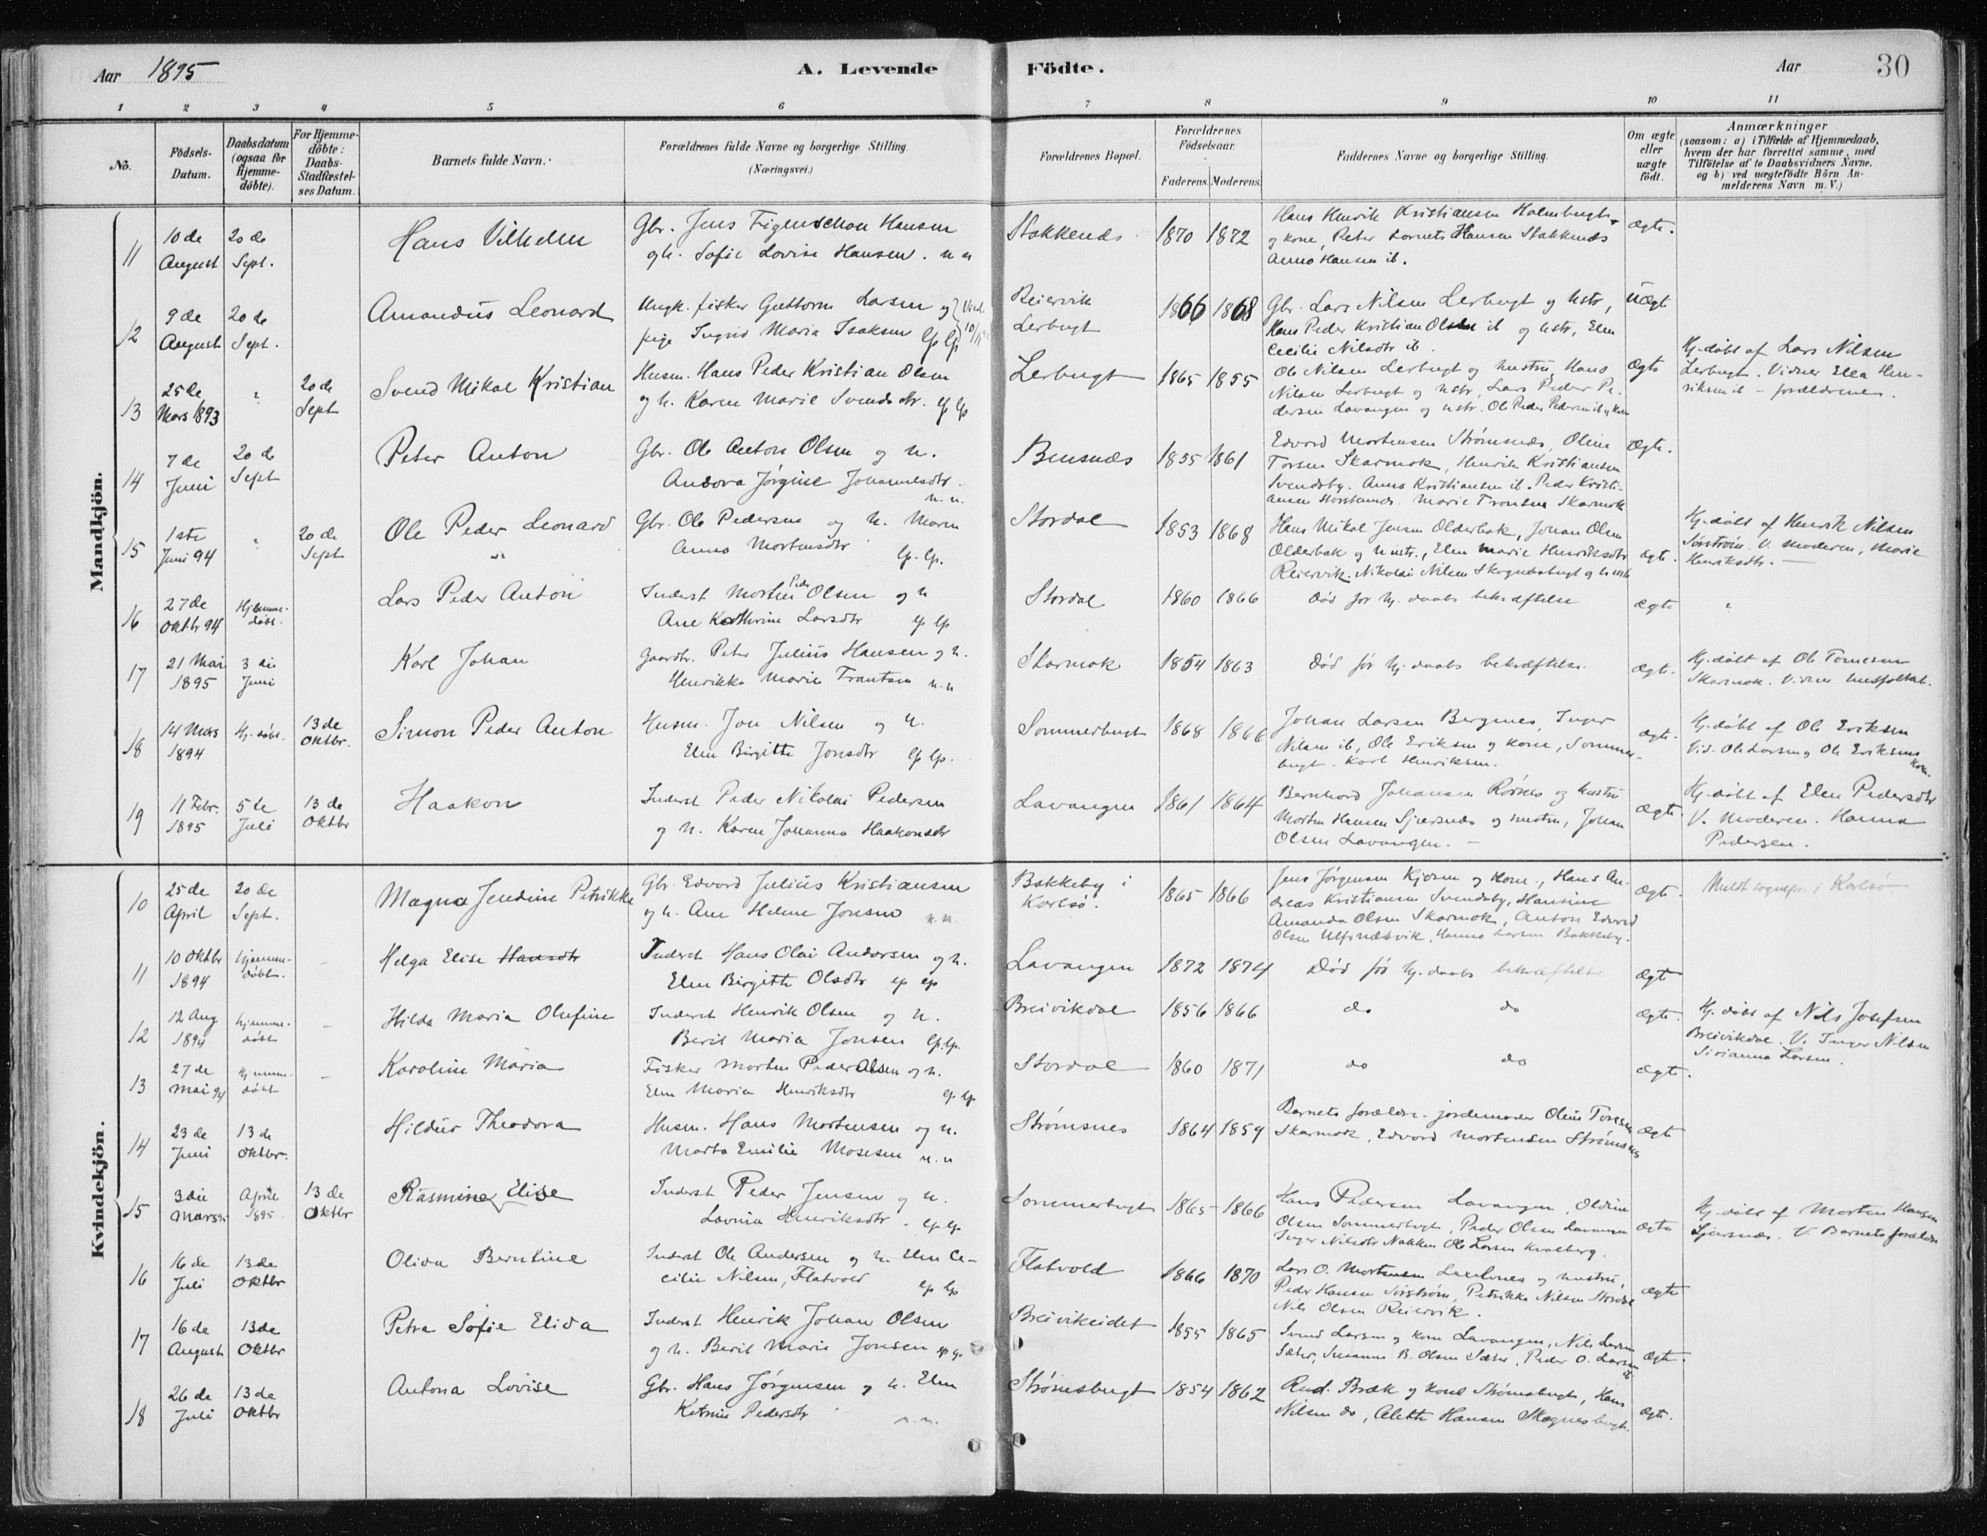 Aar 1895 A. Levende Födte. Aar 30
1 2 3 4 5 6 7 8 9 10 11
No.
Födsels-Datum.
Daabsdatum (ogsaa for Hjemme-döbte).
For Hjemme-döbte: Daabs-Stadfæstel-ses Datum.
Barnets fulde Navn.
Forældrenes fulde Navne og borgerlige Stilling (Næringsvei.)
Forældrenes Bopæl.
Forældrenes Födselsaar.
Faderens. Moderens.
Faddernes Navne og borgerlige Stilling.
Om ægte eller uægte födt.
Anmærkninger
(saasom: a) i Tilfælde af Hjemmedaab,
hvem der har forrettet samme, med
Tilföielse af to Daabsvidners Navne,
og b) ved uægtefödte Börn An-
melderens Navn m. V.)
Mandkjön.
11 10de August 20de Sept. Hans Vilhelm
Gbr. Jens Figenschou Hansen
og h. Sofie Lovise Hansen. n n
Stakkenæs 1870 1872
Hans Henrik Kristiansen
og kone, Peter Hansen Stakkenæs
Anna Hansen ib.
ægte.
12 9de August 20de Sept. Amandus Leonard
Ungk. fisker Guttorm Larsen og
pige Ingrid Maria Isaksen lp lp
Reiervik
Lerbugt
1866 1868
Gbr. Lars Nilsen Lerbugt og hstr,
Hans Peder Kristian Olsen ib og hstr, Elen
Cecilie Nilsdtr ib.
uægte
13 25de Mars 1893 " 20de Sept Svend Mikal Kristian
Husm. Hans Peder Kristian Olsen
og h. Karen Marie Svendsdtr. lp lp
Lerbugt 1865 1855
Ole Nilsen Lerbugt og hustru, Hans
Nilsen Lerbugt og hstr, Lars Peder Pe-
dersen Lavangen og hstr. Ole Peder Pedersen ib og kone
ægte
Hj.døbt af Lars Nilsen
Lerbugt. Vidner Ella Hen-
riksen ib - forældrene.
14 7de Juni 20de Sept Peter Anton
Gbr. Ole Anton Olsen og h.
Andora Jørgine Johannesdtr.
n.n.
Bensnæs 1855 1861
Edvard Mortensen Strømsnæs, Oline
Torsen Skarmok, Henrik Kristiansen
Svendsby. Anna Kristiansen ib. Peder Kristi-
ansen. Marie Skarmok
ægte.
15 1ste Juni 94 " 20de Sept Ole Peder Leonard
Gbr. Ole Pedersen og h. Maren
Anna Mortensdtr lp. lp.
Stordal 1853 1868
Hans Mikal Jensen Olderbak, Johan Olsen
Olderbak og hustr., Elen Marie Henriksdtr
Reiervik. Nikolai Nilsen og hustr
ægte.
Hj.døbt af Henrik Nilsen
Sørstrøm. V. Moderen, Marie
Henriksdtr. —
16 27de Oktbr 94 Hjemme-døbt. Lars Peder Anton
Inderst Morten Peder Olsen og h
Ane Kathrine Larsdtr lp lp
Stordal 1860 1866
Død før hj.daabs bekræftelse
ægte "
17 21 Mai 1895 3die Juni Karl Johan
Gaardbr. Peter Julius Hansen og h.
Henrikke Marie Frantsen n.n
Skarmok 1854 1863
Død før hj.daabs bekræftelse.
ægte.
Hj.døbt af Ole
Skarmok.
18 14 Mars 1894 Hj.døbt. 13de Oktbr. Simon Peder Anton
Husm. Jon Nilsen og h.
Elen Birgitte Jonsdtr lp lp.
Sommerbugt 1868 1866
Johan Larsen Bergmes, Inger
Nilsen ib, Ole Eriksen og kone, Sommer-
bugt. Karl Henriksen.
ægte.
Hj.døbt af Ole Eriksen
Vid. Ole Larsen og Ole Eriksens
kone.
19 11 Febr. 1895 5te Juli 13de Oktbr Haakon
Inderst Peder Nikolai Pedersen
og h. Karen Johanna Haakonsdtr
Lavangen 1861 1864
Bernhard Johansen Rørnes og hustru
Morten Hansen Sjursnæs og hustru, Johan
Olsen Lavangen. —
ægte.
Hj.døbt af Elen Pedersdtr
V. Moderen. Hanna
Pedersen.
Kvindekjön.
10 25de April 20de Sept. Magna Jendine Petrikke
Gbr. Edvard Julius Kristiansen
og h. Ane Helene Jonsen n.n.
Bakkeby i
Karlsø.
1865 1866
Jens Jørgensen Kjosen og kone, Hans An-
dreas Kristiansen Svendsby, Hansine
Amanda Olsen Skarmok, Anton Edvard
Olsen Ulfsnæsvik, Hanna Larsen Bakkeby.
ægte.
Meldt sognepr. i Karlsø
11 10 Oktbr 1894 Hjemme-døbt. - Helga Elise Hansdtr
Inderst Hans Olai Andersen og h.
Elen Birgitte Olsdtr lp lp
Lavangen 1872 1874
Død før hj.daabs bekræftelse
ægte
12 12 Aug 1894 Hjemme-døbt - Hilda Maria Olufine
Inderst Henrik Olsen og h.
Berit Maria Jonsen lp.lp.
Breivikdal 1856 1866
do do
ægte.
Hj.døbt af Nils Josefsen
Breivikdal. V. Inger Nilsen
Sirianna Larsen.
13 27de Mai 94 Hjemme-døbt - Karoline Maria
Fisker Morten Peder Olsen og h.
Elen Maria Henriksdtr lp lp
Stordal 1860 1871
do do
ægte.
14 23de Juni 13de Oktbr. Hildur Theodora
Husm. Hans Mortensen og h.
Marta Emilie Mosesen n.n
Strømsnes 1864 1859
Barnets forældre. jordemoder Oline Torsen
Skarmok, Edvard Mortensen Strømsnes
ægte
15 3die Mars 95 April 1895 13de Oktbr Rasmine Elise
Inderst Peder Jensen og h.
Lavina Henriksdtr. lp lp
Sommerbugt 1865 1866
Hans Pedersen Lavangen, Oldine
Olsen Sommerbugt, Peder Olsen Lavangen
Inger Nilsdtr Nakken Ole Larsen Kvalberg.
ægte
Hj.døbt af Morten Hansen
Sjursnæs. V. Barnets forældre
16 16de Juli 13de Oktbr Oliva Berntine
Inderst Ole Andersen og h. Elen Ce-
cilie Nilsen, Flatvold lp lp
Flatvold 1866 1870
Lars O. Mortensen og hustru,
Peder Hansen Sørstrøm, Petrikke Nilsen Stordal
Nils Olsen Reiervik.
ægte
17 16de August 13de Oktbr Petra Sofie Elida
Inderst Henrik Johan Olsen
og h. Berit Maria Jonsen lp lp
Breivikeidet 1855 1865
Svend Larsen og kone Lavangen, Nils Larsen
Sæter, Susanne B. Olsen Sæter, Peder O. Larsen
ib
ægte.
18 26de Juli 13de Oktbr Antona Lovise
Gbr. Hans Jørgensen og h. Elen
Katrine Pedersdtr n.n.
Strømsbugt 1854 1862
Rud. Bræk og kone Strømsbugt, Hans
Nilsen do, Alette Hansen Skognesbugt.
ægte.